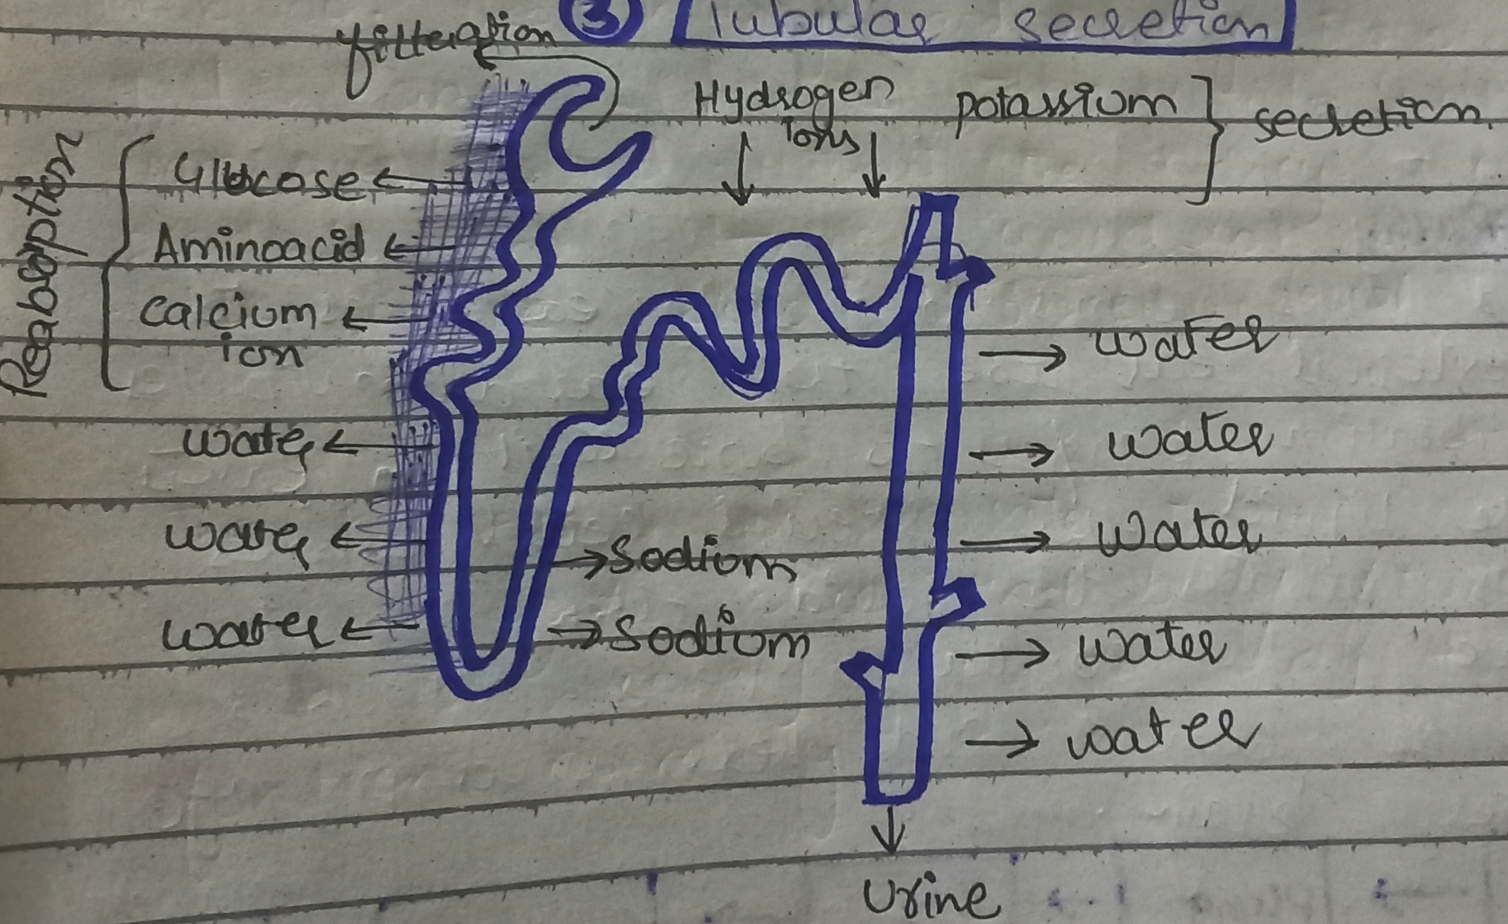 3 Tubular secretion
filteration
Hydrogen ions potassium secretion
Reabsoption
Glucose
Aminoacid
Calcium
ion
water
water
water
Sodium
Sodium
water
water
water
water
water
Urine